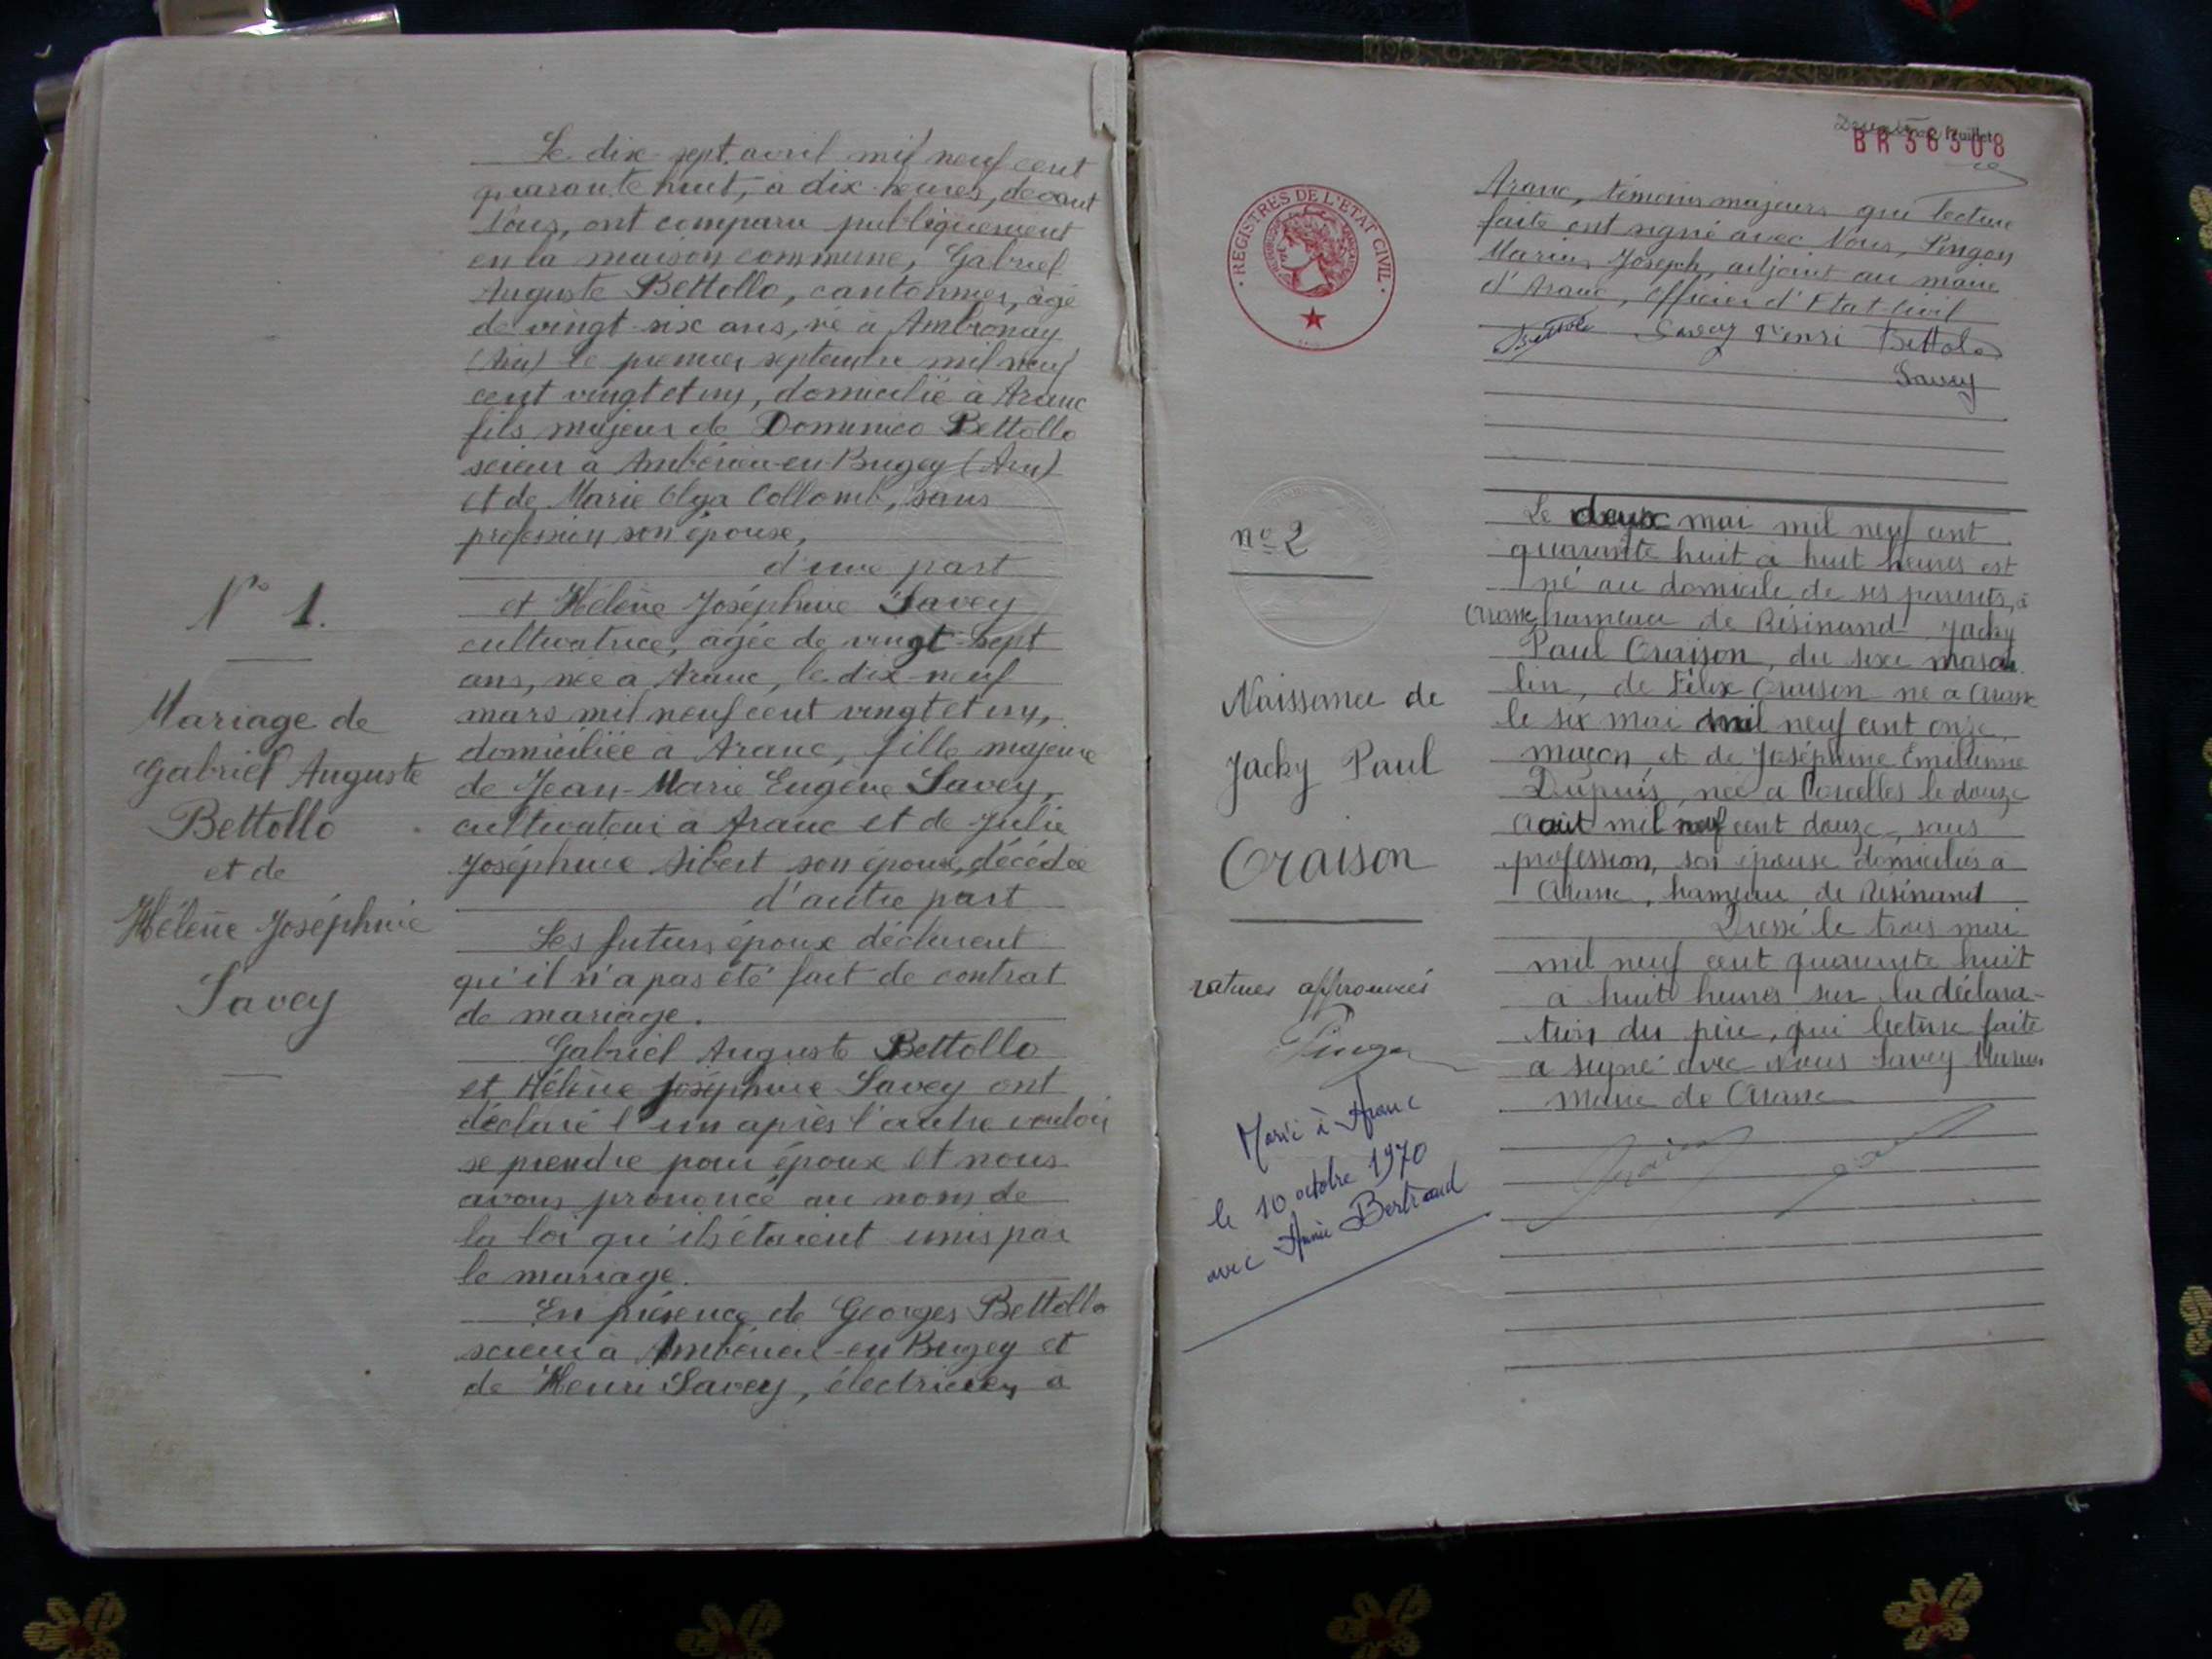 Le dix-sept avril mil neuf cent
quarante huit, à dix heures, devant
Nous, ont comparu publiquement
en la maison commune, Gabriel
Auguste Bettollo, cantonnier, âgé
de vingt-six ans, né à Ambronay
(Ain) le premier septembre mil neuf
cent vingt et un, domicilié à Aranc
fils majeur de Dominico Bettollo
scieur à Ambérieu-en-Bugey (Ain)
et de Marie Olga Collomb, sans
profession son épouse,
d'une part
et Hélène Joséphine Savey
cultivatrice, âgée de vingt-sept
ans, née à Aranc, le dix-neuf
mars mil neuf cent vingt et un,
domiciliée à Aranc, fille majeure
de Jean-Marie Eugène Savey,
cultivateur à Aranc et de Julie
Joséphine Sibert son épouse, décédée
d'autre part
Les futurs époux déclarent
qu'il n'a pas été fait de contrat
de mariage.
Gabriel Auguste Bettollo
et Hélène Joséphine Savey ont
déclaré l'un après l'autre vouloir
se prendre pour époux et nous
avons prononcé au nom de
la loi qu'ils étaient unis par
le mariage.
En présence de Georges Bettollo
scieur à Ambérieu-en-Bugey et
de Henri Savey, électricien, à
N° 1.
Mariage de
Gabriel Auguste
Bettollo
et de
Hélène Joséphine
Savey
feuillet
BR36308
REGISTRES DE L'ETAT CIVIL
Aranc, témoins majeurs qui lecture
faite ont signé avec Nous, Pingon
Marius Joseph, adjoint au maire
d'Aranc, Officier d'Etat-Civil
Savey Henri Bettolo
Savey
n° 2
Naissance de
Jacky Paul
Oraison
ratures approuvées
Marié à Aranc
le 10 octobre 1970
avec Annie Bertrand
Le deux mai mil neuf cent
quarante huit à huit heures est
né au domicile de ses parents, à
Aranc hameau de Résinand Jacky
Paul Oraison, du sexe mascu
lin, de Félix Oraison né à Aranc
le six mai mil neuf cent onze,
maçon et de Joséphine Emilienne
Dupuis, née à Corcelles le douze
août mil neuf cent douze, sans
profession, son épouse domiciliés à
Aranc, hameau de Résinand
Dressé le trois mai
mil neuf cent quarante huit
à huit heures sur la déclara-
tion du père, qui lecture faite
a signé avec Nous Savey Marius
Maire de Aranc
Oraison